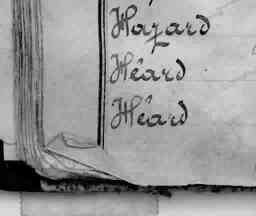 Hazard
Héard
Héard